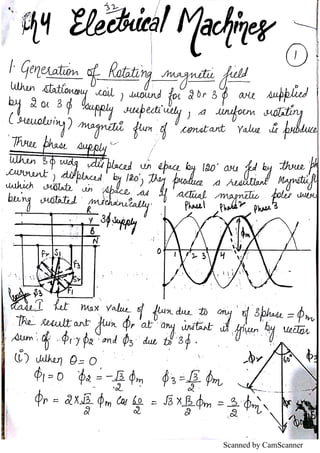 32
Ch4 Electrical Machines
1
1. Generation of Rotating magnetic field
When stationary coil, wound for 2 or 3 ϕ are supplied
by 2 or 3 ϕ supply respectively, a uniform rotating
(revolving) magnetic flux of constant value is produce
Three phase supply
When 3ϕ wdg displaced in space by 120° are fd by three ph
current, displaced by 120°, they produce a resultant Magnetic fl
which rotate in space as if actual magnetic poles were
being rotated mechanically.
Phase1 Phase2 Phase 3
R
Y 3ϕ supply
B
N
ϕm
0 1 2 3 4
Case I Let max value of flux due to any of 3phase = ϕm
The resultant flux ϕr at any instant is given by vector
sum of ϕ1, ϕ2 and ϕ3 due to 3ϕ.
(i) when θ = 0
ϕ1 = 0 ϕ2 = -√3/2 ϕm ϕ3 = √3/2 ϕm
ϕr = 2 x √3/2 ϕm Cos 60/2 = √3 x √3/2 ϕm = 3/2 ϕm
ϕr 60° ϕ3
Scanned by CamScanner